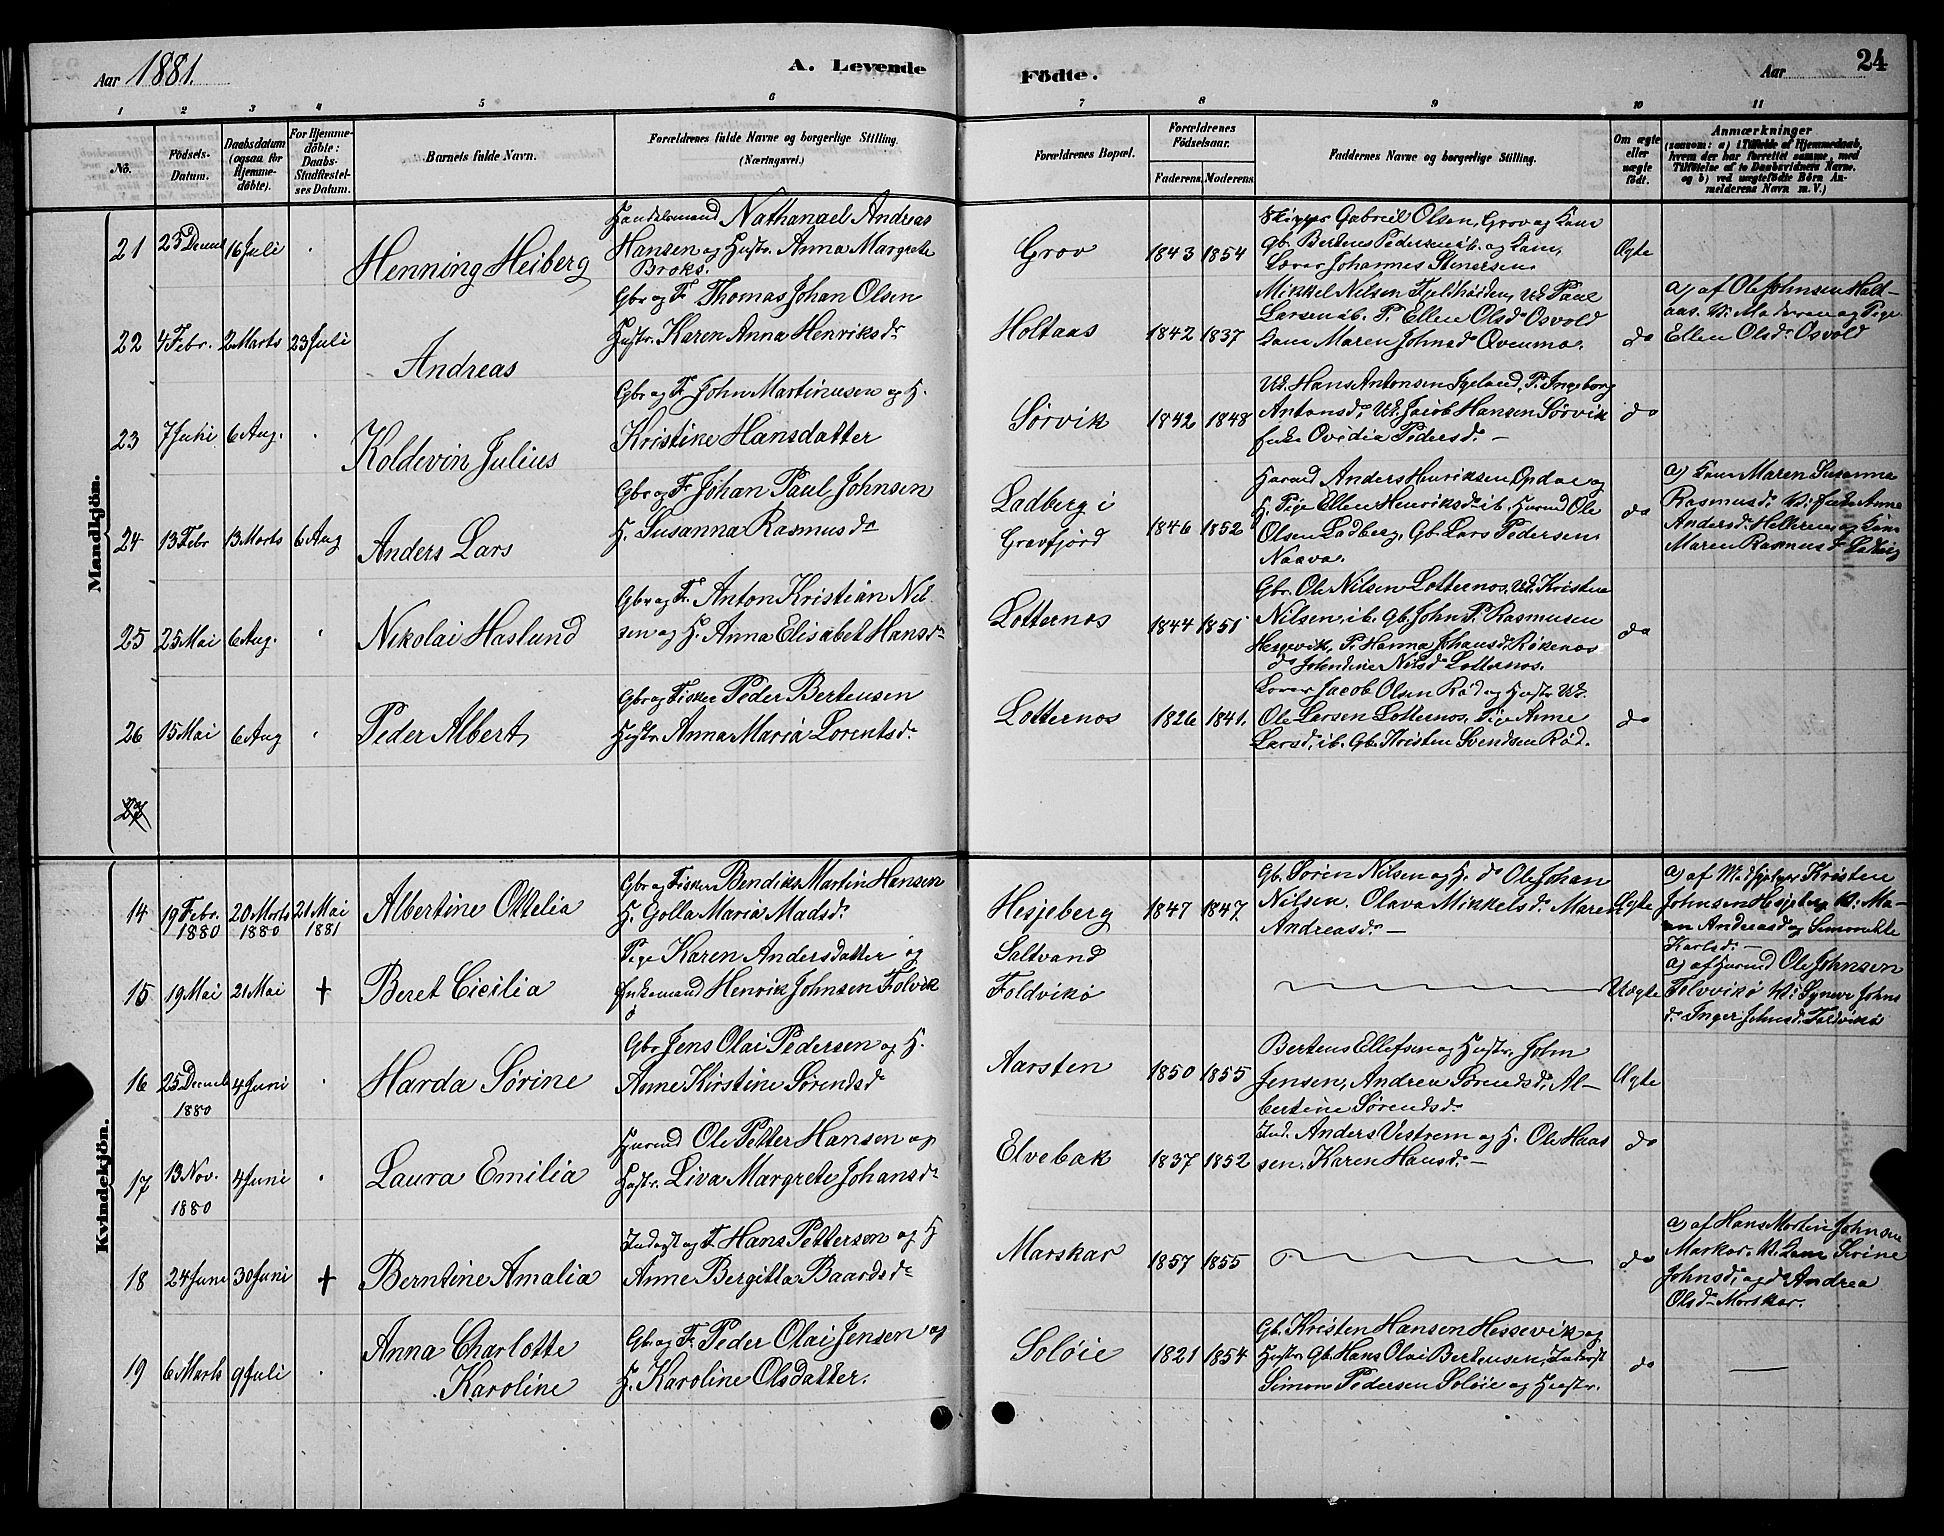 Aar 1881.
A. Levende Födte.
Aar
24
1 2 3 4 5 6 7 8 9 10 11
No.
Födsels-Datum.
Daabsdatum (ogsaa for Hjemme-döbte).
For Hjemme-döbte: Daabs-Stadfæstel-ses Datum.
Barnets fulde Navn.
Forældrenes fulde Navne og borgerlige Stilling.
(Næringsvei.)
Forældrenes Bopæl.
Forældrenes Födselsaar.
Faderens. Moderens.
Faddernes Navne og borgerlige Stilling.
Om ægte eller uægte födt.
Anmærkninger
(saasom: a) i Tilfælde af Hjemmedaab,
hvem der har forrettet samme, med
Tilföielse af to Daabsvidners Navne,
og b) ved uægtefödte Börn An-
melderens Navn m. V.)
Mandkjön.
21 23 Decem 16 Juli Henning Heiberg
Handelsmand Nathanael Andreas
Hansen og Hustr. Anna Margrete
Broks.
Grov 1843 1854
Skipper Gabriel Olsen, Grov og Kone
Gb. Berteus Pedersen ib. og Kone,
Lærer Johannes Stenersen
Ægte
22 4 Febr. 2 Marts 23 Juli Andreas
Gbr og F. Thomas Johan Olsen
Hustr. Karen Anna Henriksdr
Holtaas 1842 1837
Mikkel Nilsen Fjeldhøiden, Uk Paul
Larsen ib. P. Ellen Olsd Osvold
Kone Maren Johnsd Qvenmo.
do
a) af Ole Johnsen Holt-
aas. V: Moderen og Pige
Ellen Olsdr Osvold
23 7 Juni 6 Aug. Koldevin Julius
Gbr og F. John Martinusen og H.
Kristine Hansdatter
Sørvik 1842 1848
Uk. Hans Antonsen Igeland, P. Ingeborg
Antonsd, Uk. Jacob Hansen Sørvik
Enke Ovidia Pedersd. —
do
24 13 Febr 13 Marts 6 Aug Anders Lars
Gbr og F. Johan Paul Johnsen
H. Susanna Rasmusdr
Ladberg i
Gravfjord
1846 1852
Husmd Anders Henriksen Opdal og
H. Pige Ellen Henriksd. ib. Husmd Ole
Olsen Ladberg, Gb. Lars Pedersen
Naava.
do
a) Kone Maren Susanna
Rasmusd. V: Enke Anne
Andersd. Helleren og Kone
Maren Rasmusd Ladberg
25 25 Mai 6 Aug. Nikolai Haslund
Gbr og F. Anton Kristian Nil-
sen og H. Anna Elisabet Hansdr
Lotternos 1844 1851
Gbr. Ole Nilsen Lotternos, Uk Kristen
Nilsen, ib. Gb. John P. Rasmusen
Hessevik, P. Hanna Johansd. Røkenos
do Johndine Nilsd Lotternos.
do
26 15 Mai 6 Aug Peder Albert
Gbr og Fisker Peder Berteusen
Hustr. Anna Maria Lorentsdr
Lotternos 1826 1841.
Lærer Jacob Olsen Rød og Hustr Uk.
Ole Larsen Lotternos, Pige Anne
Larsd, ib. Gb. Kristen Svendsen Rød.
do
27
Kvindekjön.
14 19 Febr. 1880 20 Marts 1880 21 Mai 1881 Albertine Ottelia
Gbr og Fisker Bendiks Martin Hansen
H. Golla Maria Madsdr
Hesjeberg 1847 1847
Gb. Søren Nilsen og H. do Ole Johan
Nilsen. Olava Mikkelsd. Maren
Andreasd. —
Ægte
a) af Medhjelper Kristen
Johnsen Hesjeberg V: Ma-
ren Andreasd og
Karlsd. —
15 19 Mai 21 Mai † Beret Cicilia
Pige Karen Andersdatter og
Enkemand Henrik Johnsen Folvik
ø
Saltvand
Foldvikø
Uægte
a) af Husmd Ole Johnsen
Folvvikø V: Synevr Johns
d. Inger Johnsd. Foldvikø
16 25 Decemb 1880 4 Juni Harda Sørine
Gbr Jens Olai Pedersen og H.
Anne Kirstine Sørendsdr
Aarsten 1850 1855
Berteus Ellefsen og Hustr. John
Jensen, Andrea Sørendsd, Al-
bertine Sørendsd.
Ægte
17 13 Nov. 1880 4 Juni Laura Emilia
Husmd Ole Petter Hansen og
Hustr. Liva Margrete Johansdr
Elvebak 1837 1852
Ind. Anders Vestrem og H. Ole Haas
sen. Karen Hansd. —
do
18 24 Juni 30 Juni † Berntine Amalia
Inderst og F. Hans Pettersen og H
Anne Bergitta Baardsdr
Marskar 1857 1855
do
a) af Hans Martin Johnsen
Markar. V: Kone Serine
Johnsd, og do Andrea
Olsd Morskar.
19 6 Marts 9 Juli Anna Charlotte
Karoline
Gb. og F. Peder Olai Jensen og
H. Karoline Olsdatter.
Soløie 1821 1854
Gb. Kristen Hansen Hessevik og
Hustr. Gb. Hans Olai Berteusen, Inderst
Simon Pedersen Soløie og Hustr.
do
—